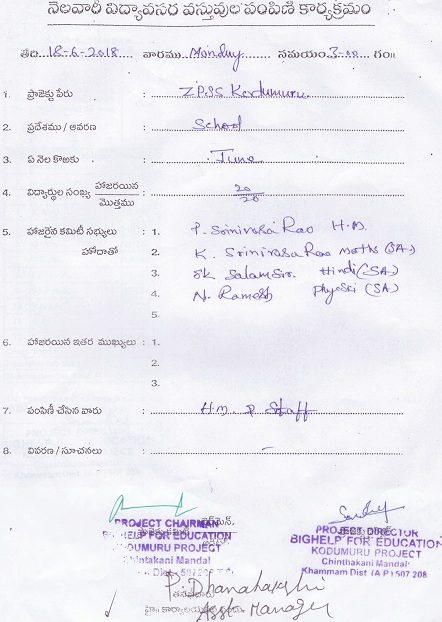 నెలవారీ విద్యావసర వస్తువుల పంపిణి కార్యక్రమం
తేది 18-6-2018 వారము Monday సమయం 3-00 గం॥
1. ప్రాజెక్టు పేరు : ZPSS Kodumuru
2. ప్రదేశము / ఆవరణ : School
3. ఏ నెల కొఱకు : June
4. విద్యార్థుల సంఖ్య హాజరయిన : 20
మొత్తము 20
5. హాజరైన కమిటీ సభ్యులు : 1. P. Srinivasa Rao H.M
హోదాతో 2. K. Srinivasa Rao Maths (SA)
3. SK Salam Hindi (SA)
4. N. Ramesh Phy Sci (SA)
5.
6. హాజరయిన ఇతర ముఖ్యులు : 1.
2.
3.
7. పంపిణీ చేసిన వారు : H.M & Staff
8. వివరణ / సూచనలు : -
PROJECT CHAIRMAN
BIGHELP FOR EDUCATION
KODUMURU PROJECT
Chintakani Mandal
PROJECT DIRECTOR
BIGHELP FOR EDUCATION
KODUMURU PROJECT
Chinthakani Mandal
Khammam Dist (A.P) 507 208
P. Dhanalakshmi
Asst Manager